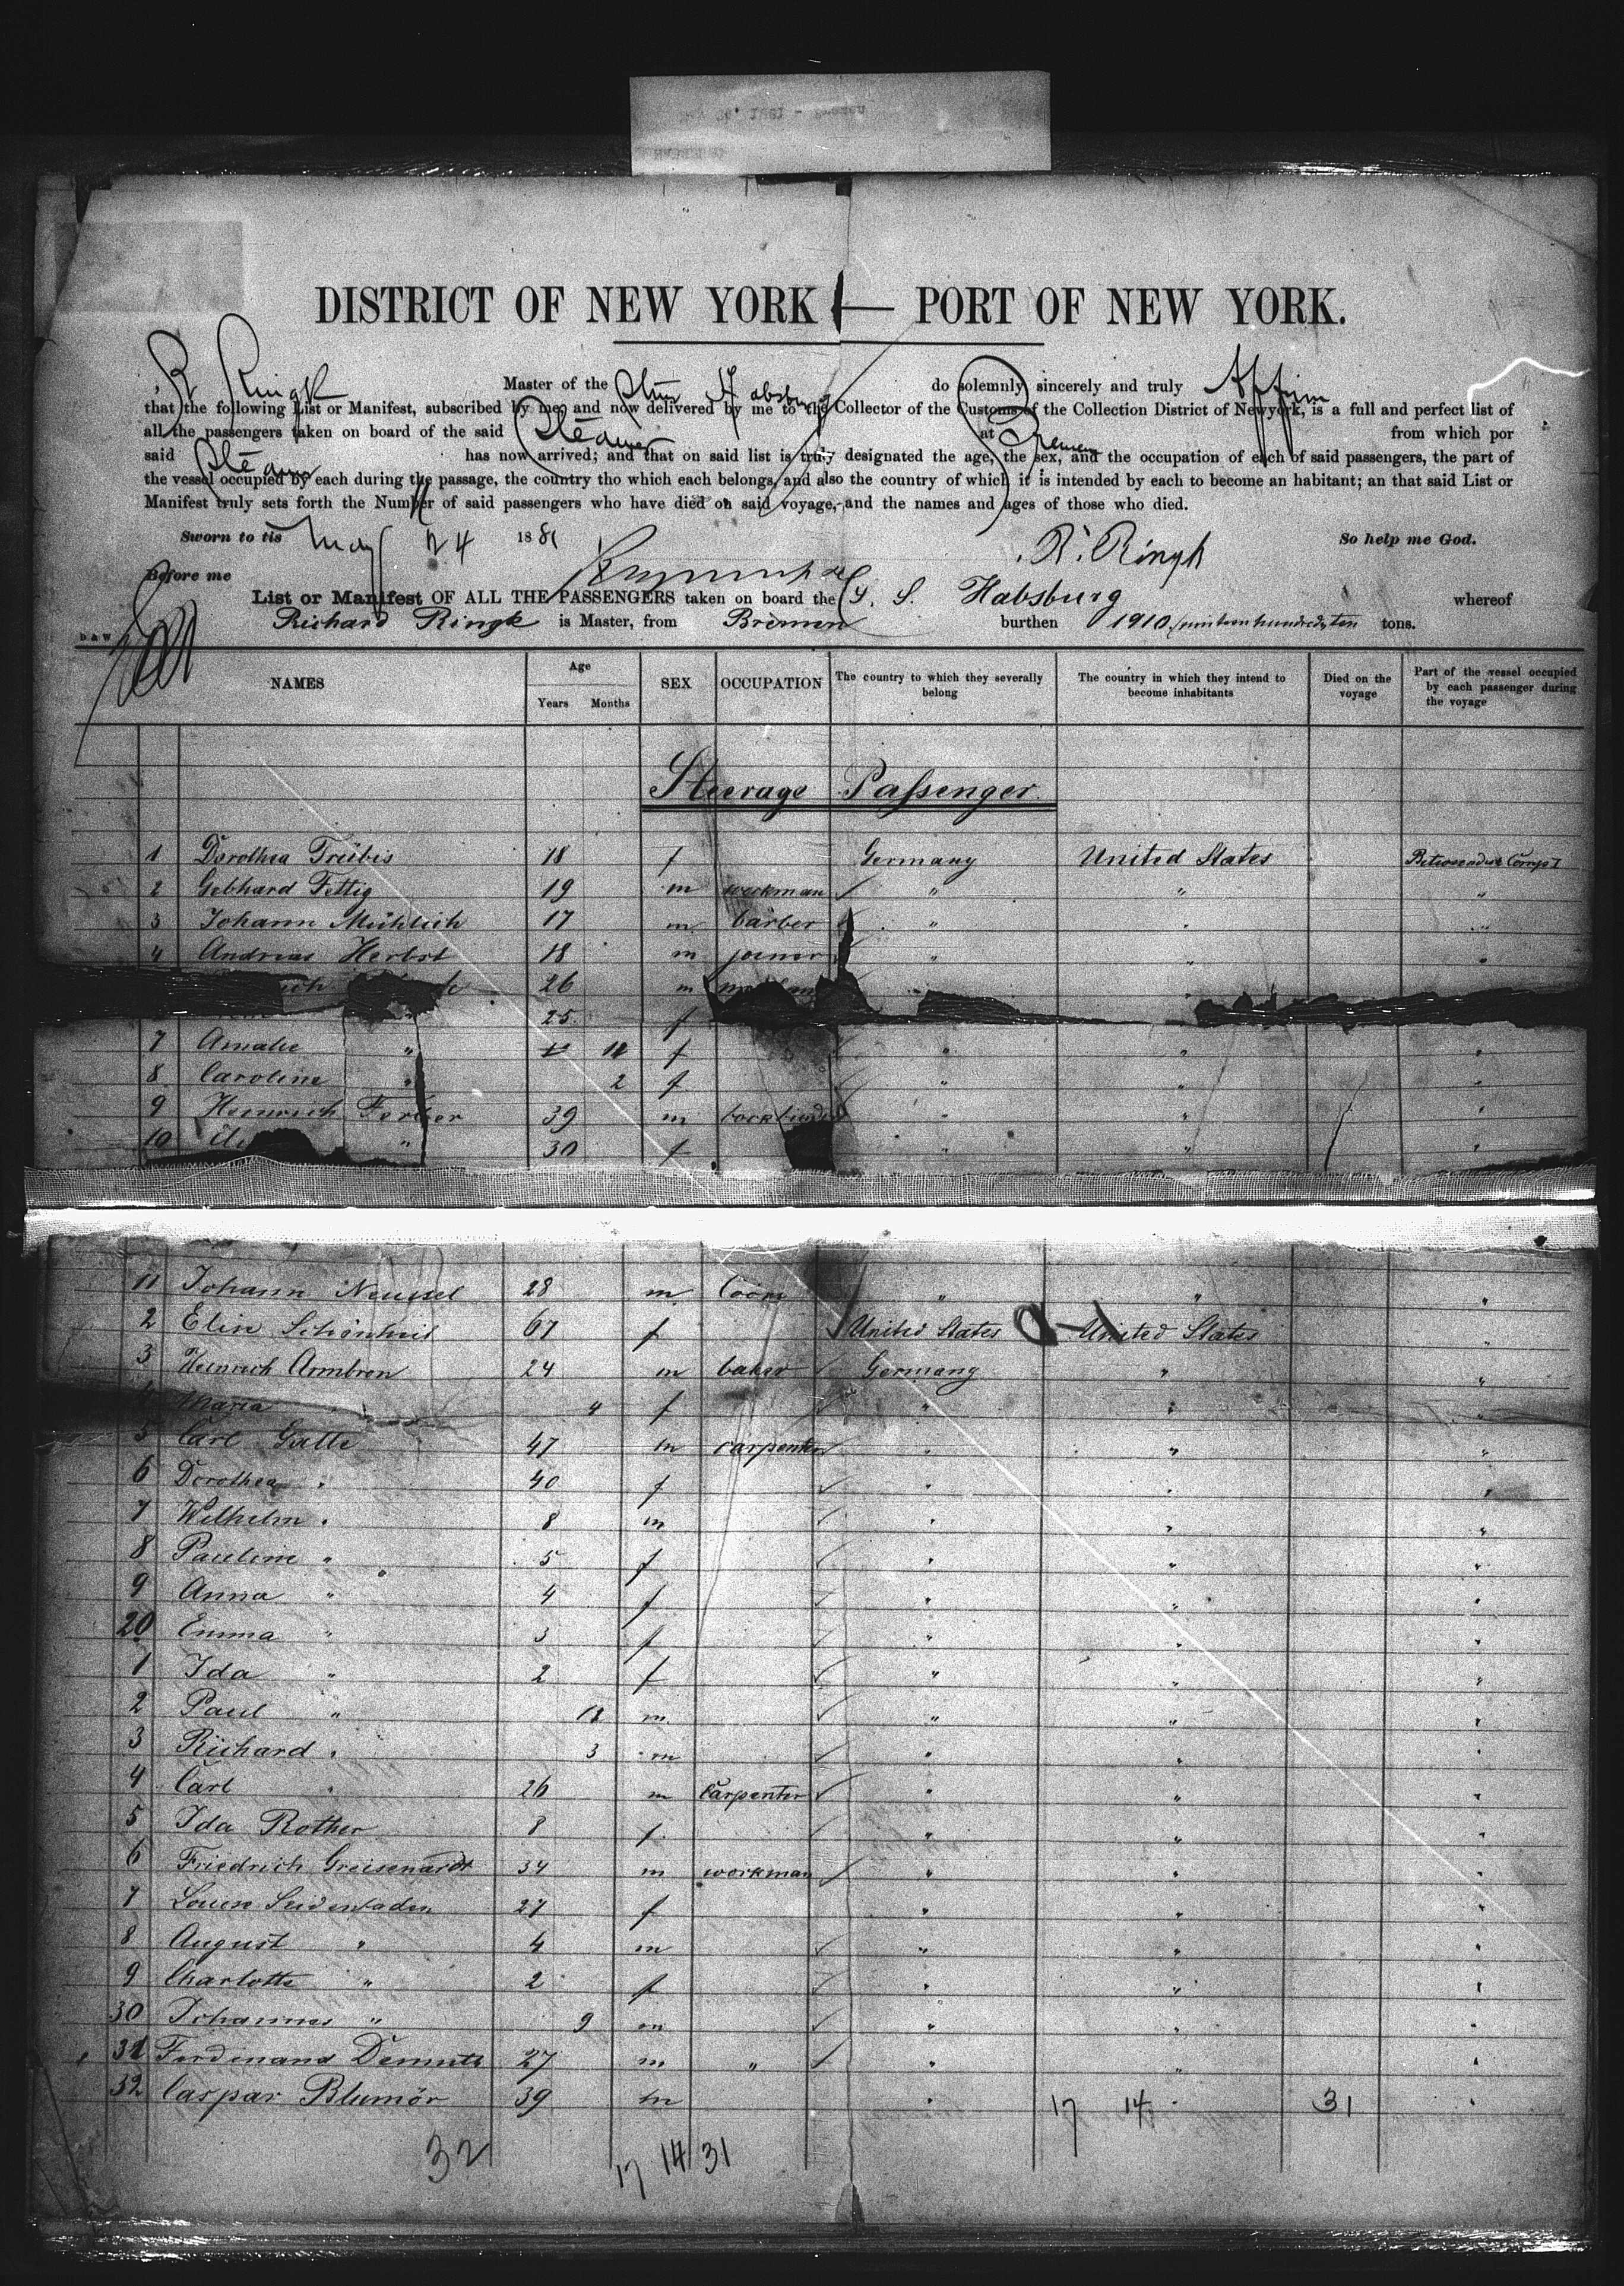 DISTRICT OF NEW YORK — PORT OF NEW YORK.
R Ringk Master of the Stmr Habsburg do solemnly sincerely and truly Affirm
that the following List or Manifest, subscribed by me, and now delivered by me to the Collector of the Customs of the Collection District of Newyork, is a full and perfect list of
all the passengers taken on board of the said Steamer at Bremen from which por
said Steamer has now arrived; and that on said list is truly designated the age, the sex, and the occupation of each of said passengers, the part of
the vessel occupied by each during the passage, the country tho which each belongs, and also the country of which it is intended by each to become an habitant; an that said List or
Manifest truly sets forth the Number of said passengers who have died on said voyage, and the names and ages of those who died.
Sworn to tis May 24 1881 R. Ringk So help me God.
Before me
List or Manifest OF ALL THE PASSENGERS taken on board the S. S. Habsburg whereof
Richard Ringk is Master, from Bremen burthen 1910 tons.
NAMES Age Years Months SEX OCCUPATION The country to which they severally belong The country in which they intend to become inhabitants Died on the voyage Part of the vessel occupied by each passenger during the voyage
Steerage Passenger
1 Dorothea Treibis 18 f Germany United States
2 Gebhard Fettig 19 m workman " " "
3 Johann Mühlich 17 m barber " " "
4 Andreas Herbst 18 m joiner " " "
26 m
25 f
7 Amalie " 11 f " " "
8 Caroline " 2 f " " "
9 Heinrich Ferber 39 m " " "
10 " 30 f " " "
11 Johann Neussel 28 m " " "
2 Elise Schönheit 67 f United States United States "
3 Heinrich Armbron 24 m baker Germany " "
4 Maria " 4 f " " "
5 Carl Gatte 47 m carpenter " " "
6 Dorothea " 40 f " " "
7 Wilhelm " 8 m " " "
8 Pauline " 5 f " " "
9 Anna " 4 f " " "
20 Emma " 3 f " " "
1 Ida " 2 f " " "
2 Paul " 11 m " " "
3 Richard " 3 m " " "
4 Carl " 26 m Carpenter " " "
5 Ida Rother 8 f " " "
6 Friedrich Greisenardt 34 m workman " " "
7 Louise Seidenfaden 27 f " " "
8 August " 4 m " " "
9 Charlotte " 2 f " " "
30 Johannes " 9 m " " "
31 Ferdinand Demuth 27 m " " " "
32 Caspar Blumör 39 m " " "
17 14 31
32 17 14 31